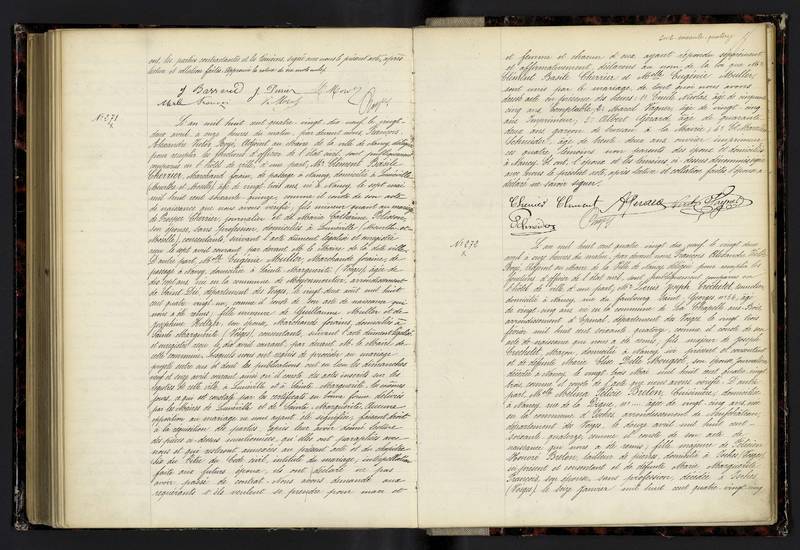 ont, les parties contractantes et les témoins, signé avec nous le présent acte, après
lecture et collation faites.
J Barreux
No 271
L'an mil huit cent quatre vingt dix neuf, le vingt-
deux avril, à onze heures du matin, par devant nous François
Alexandre Victor Boye, Adjoint au Maire de la ville de Nancy, délégué
pour remplir les fonctions d'officier de l'état civil, sont publiquement
comparus en l'hôtel de ville, d'une part, Mr Clément Basile
Cherrier, Marchand forain, de passage à Nancy, domicilié à Lunéville
(Meurthe et Moselle), âgé de vingt trois ans, né à Nancy, le sept mai
mil huit cent soixante quinze, comme il conste de son acte
de naissance que nous avons vérifié, fils mineur quant au mariage
de Prosper Cherrier, journalier et de Marie Catherine
son épouse, sans profession, domiciliés à Lunéville (Meurthe-et-
Moselle), consentants, suivant l'acte dûment légalisé et enregistré
reçu le sept avril courant par devant M. le Maire de la dite ville
D'autre part, Melle Eugénie Muller, Marchande foraine, de
passage à Nancy, domiciliée à Sainte Marguerite (Vosges), âgée de
dix huit ans, née en la commune de Moyenmoutier, arrondissement
de Saint Dié, département des Vosges, le vingt deux août mil huit
cent quatre vingt un, comme il conste de son acte de naissance qui
nous a été remis, fille mineure de Guillaume Muller et de
Joséphine son épouse, Marchands forains, domiciliés à
Sainte Marguerite (Vosges), consentants, suivant l'acte dûment légalisé
et enregistré reçu le dix avril courant, par devant M. le Maire de
cette commune. Lesquels nous ont requis de procéder au mariage
projeté entre eux et dont les publications ont eu lieu les dimanches
neuf et seize avril courant ainsi qu'il conste des actes inscrits sur les
registres de cette ville, à Lunéville et à Sainte Marguerite les mêmes
jours, ce qui est constaté par les certificats en bonne forme délivrés
par les Maires de Lunéville et de Sainte Marguerite. Aucune
opposition au mariage ne nous ayant été signifiée, faisant droit
à la réquisition des parties, après leur avoir donné lecture
des pièces ci-dessus mentionnées, qu'elles ont paraphées avec
nous et qui resteront annexées au présent acte et du chapitre
six du titre du Code civil, intitulé du mariage, interpellation
faite aux futurs époux, ils ont déclaré ne pas
avoir passé de contrat. Nous avons demandé aux
requérants s'ils veulent se prendre pour mari et
Cent soixante-quatorze
et femme et chacun d'eux ayant répondu séparément
et affirmativement, déclarons au nom de la loi que Mr
Clément Basile Cherrier et Melle Eugénie Muller,
sont unis par le mariage, de tout quoi nous avons
dressé acte en présence de témoins: 1° Emile Nicolas, âgé de cinquante
cinq ans, Comptable; 2° Marcel âgé de vingt cinq
ans Imprimeur; 3° Albert Gérard, âgé de quarante
deux ans garçon de bureau à la Mairie; 4° et
Schneider, âgé de trente deux ans ouvrier imprimeur
ces quatre témoins non parents des époux et domiciliés
à Nancy. Et ont, l'époux et les témoins ci-dessus dénommés signé
avec nous le présent acte, après lecture et collation faites l'épouse a
déclaré ne savoir signer.
Cherrier Clément A Gérard
Schneider
No 272
L'an mil huit cent quatre vingt dix neuf, le vingt deux
avril à onze heures du matin, par devant nous François Alexandre Victor
Boye, Adjoint au Maire de la Ville de Nancy, délégué pour remplir les
fonctions d'officier de l'état civil, sont publiquement comparus en
l'hôtel de ville, d'une part, Mr Louis Joseph Créchelet,
domicilié à Nancy, rue du faubourg Saint Georges no 54, âgé
de vingt cinq ans, né en la commune de La Chapelle aux Bois,
arrondissement d'Epinal, département des Vosges, le vingt trois
février mil huit cent soixante quatorze, comme il conste de son
acte de naissance qui nous a été remis, fils majeur de Joseph
Créchelet, Maçon, domicilié à Nancy, ici présent et consentant
et de défunte Marie Elise Delle son épouse journalière
décédée à Nancy, le vingt trois Mai mil huit cent quatre vingt
trois, comme il conste de l'acte que nous avons vérifié. D'autre
part, Melle Melina Félicie Brelon, Cuisinière, domiciliée
à Nancy, rue de la Digue, no âgée de vingt cinq ans, née
en la commune d'Isches, arrondissement de Neufchâteau,
département des Vosges, le douze avril mil huit cent
soixante quatorze, comme il conste de son acte de
naissance qui nous a été remis, fille majeure de
Honoré Brelon, tailleur de pierres, domicilié à Isches (Vosges)
ici présent et consentant et de défunte Marie Marguerite
François, son épouse, sans profession, décédée à Isches
(Vosges), le seize janvier mil huit cent quatre vingt cinq